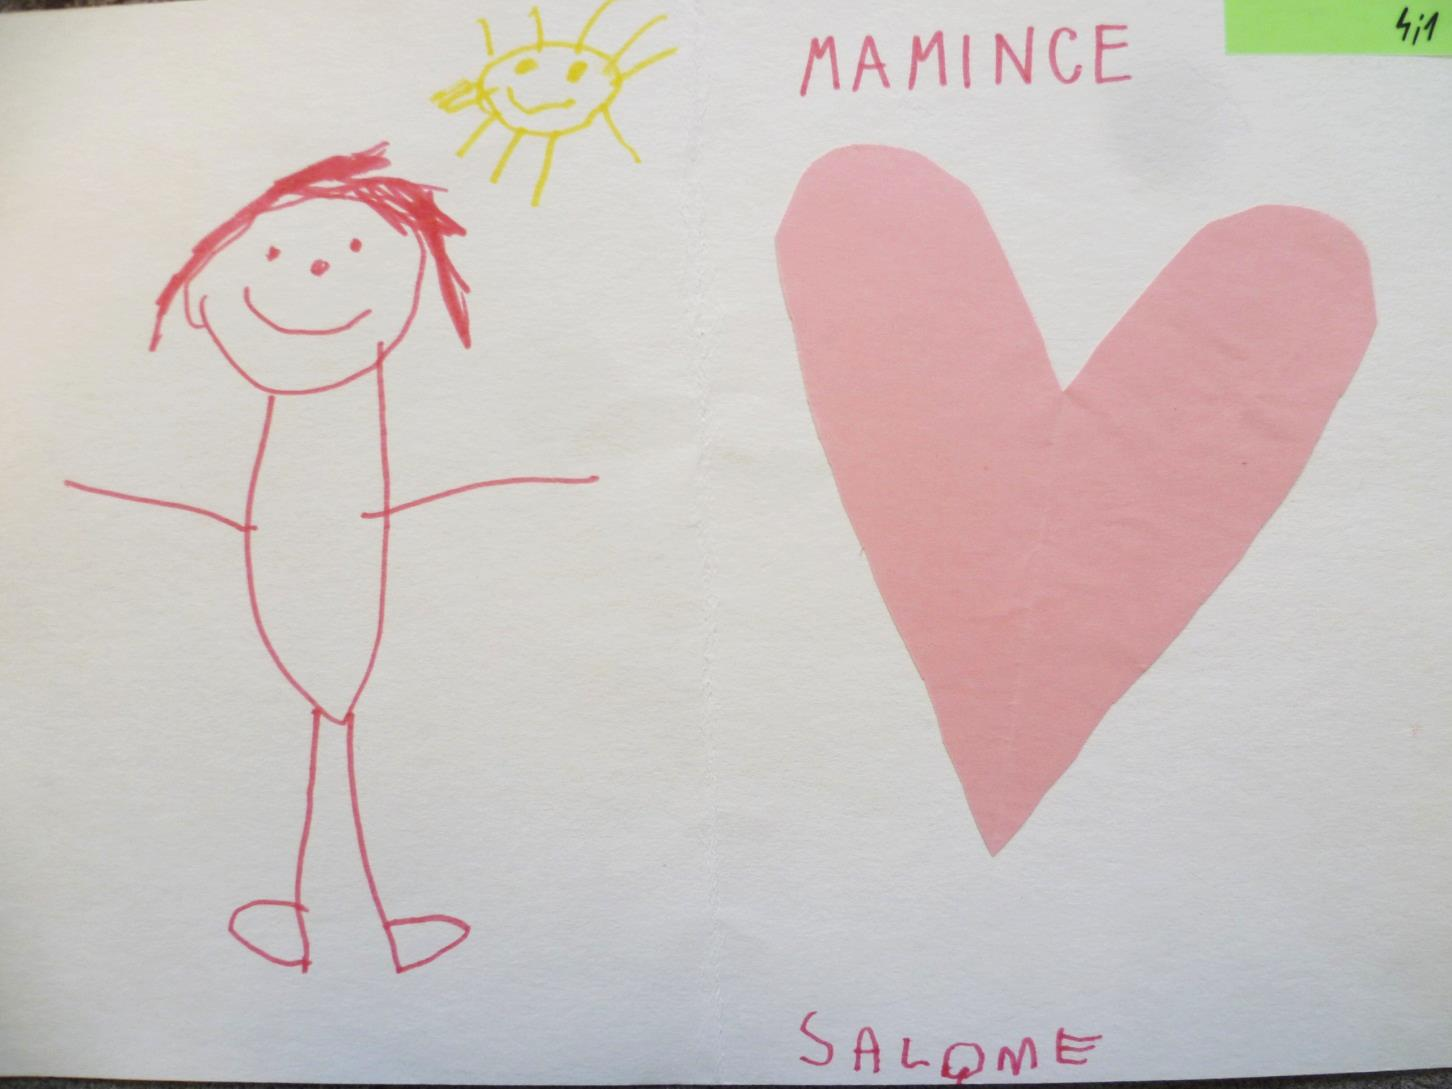 4;1
MAMINCE
SALOME